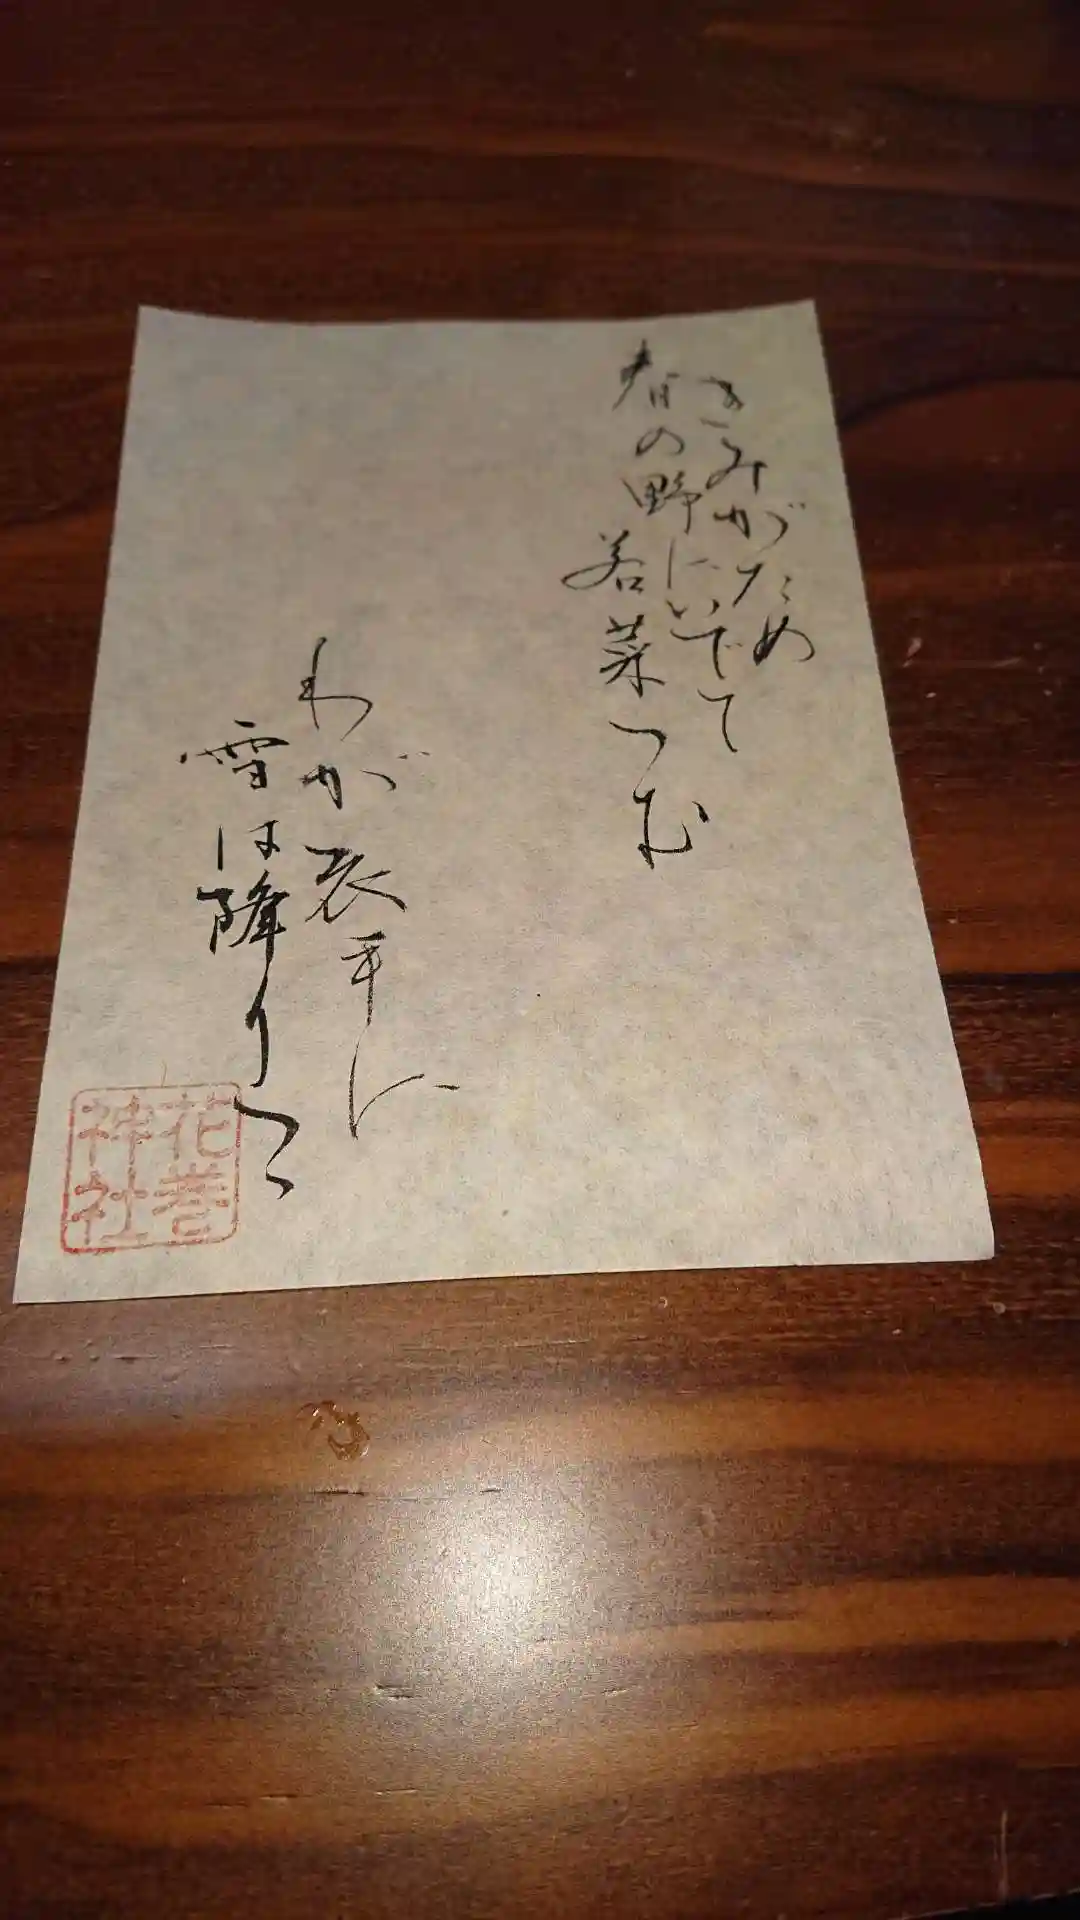 きみがため
春の野にいでて
若菜つむ
わが衣手に
雪は降りつつ
花巻
神社